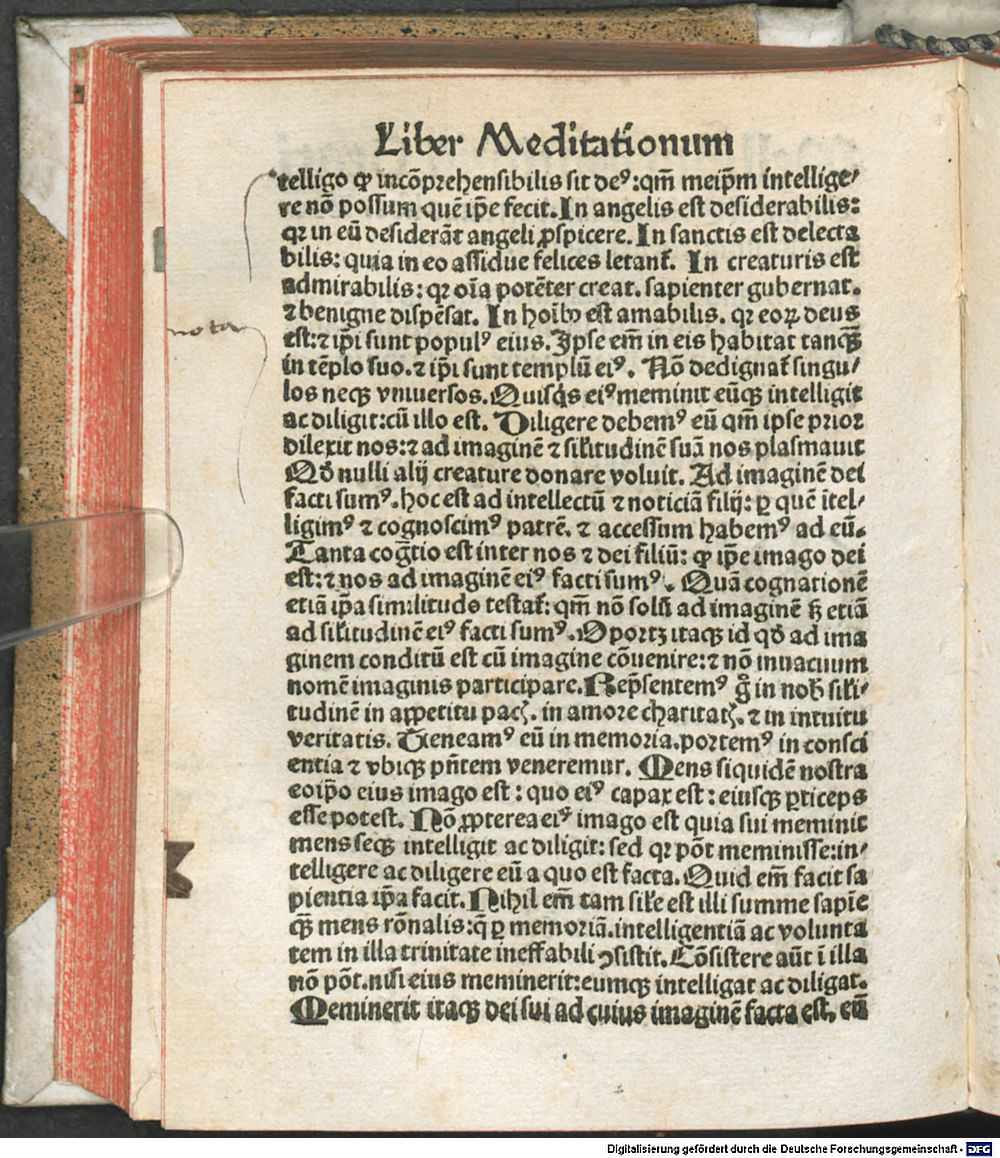 Liber Meditationum
telligo ꝙ incõprehensibilis sit deꝰ: qm̃ meip̃m intellige⸗
re nõ possum quẽ ip̃e fecit. In angelis est desiderabilis:
qꝛ in eũ desiderãt angeli ꝓspicere. In sanctis est delecta
bilis: quia in eo assidue felices letant̃. In creaturis est
admirabilis: qꝛ oĩa potẽter creat. sapienter gubernat.
⁊ benigne dispẽsat. In hoĩbꝰ est amabilis. qꝛ eoꝝ deus
est: ⁊ ip̃i sunt populꝰ eius. Ipse em̃ in eis habitat tanqȝ̃
nota
in tẽplo suo. ⁊ ip̃i sunt templũ eiꝰ. Nõ dedignat̃ singu⸗
los neqȝ vniuersos. Quisq̃s eiꝰ meminit eũqȝ intelligit
ac diligit: cũ illo est. Diligere debemꝰ eũ qm̃ ipse prior
dilexit nos: ⁊ ad imaginẽ ⁊ sil̃itudinẽ suã nos plasmauit
Qđ nulli alij creature donare voluit. Ad imaginẽ dei
facti sumꝰ. hoc est ad intellectũ ⁊ noticiã filij: ꝑ quẽ ĩtel⸗
ligimꝰ ⁊ cognoscimꝰ patrẽ. ⁊ accessum habemꝰ ad eũ.
Tanta cog̃tio est inter nos ⁊ dei filiũ: ꝙ ip̃e imago dei
est: ⁊ nos ad imaginẽ eiꝰ facti sumꝰ. Quã cognationẽ
etiã ip̃a similitudo testat̃: qm̃ nõ solũ ad imaginẽ sꝫ etiã
ad sil̃itudinẽ eiꝰ facti sumꝰ. Oportꝫ itaqȝ id qđ ad ima
ginem conditũ est cũ imagine cõuenire: ⁊ nõ inuacuum
nomẽ imaginis participare. Rep̃sentemꝰ g̊ in nob̃ sil̃i⸗
tudinẽ in appetitu pacꝭ. in amore charitatꝭ. ⁊ in intuitu
veritatis. Teneamꝰ eũ in memoria. portemꝰ in consci
entia ⁊ vbiqȝ pñtem veneremur. Mens siquidẽ nostra
eoip̃o eius imago est: quo eiꝰ capax est: eiusqȝ ꝑticeps
esse potest. Nõ ꝓpterea eiꝰ imago est quia sui meminit
mens seqȝ intelligit ac diligit: sed qꝛ põt meminisse: in⸗
telligere ac diligere eũ a quo est facta. Quid em̃ facit sa
pientia ip̃a facit. Nihil em̃ tam sil̃e est illi summe sapiẽ
qȝ̃ mens rõnalis: q̃ ꝑ memoriã. intelligentiã ac volunta
tem in illa trinitate ineffabili ꝯsistit. Cõsistere aũt ĩ illa
nõ põt. nisi eius meminerit: eumqȝ intelligat ac diligat.
Meminerit itaqȝ dei sui ad cuius imaginẽ facta est, eũ
Digitalisierung gefördert durch die Deutsche Forschungsgemeinschaft - DFG